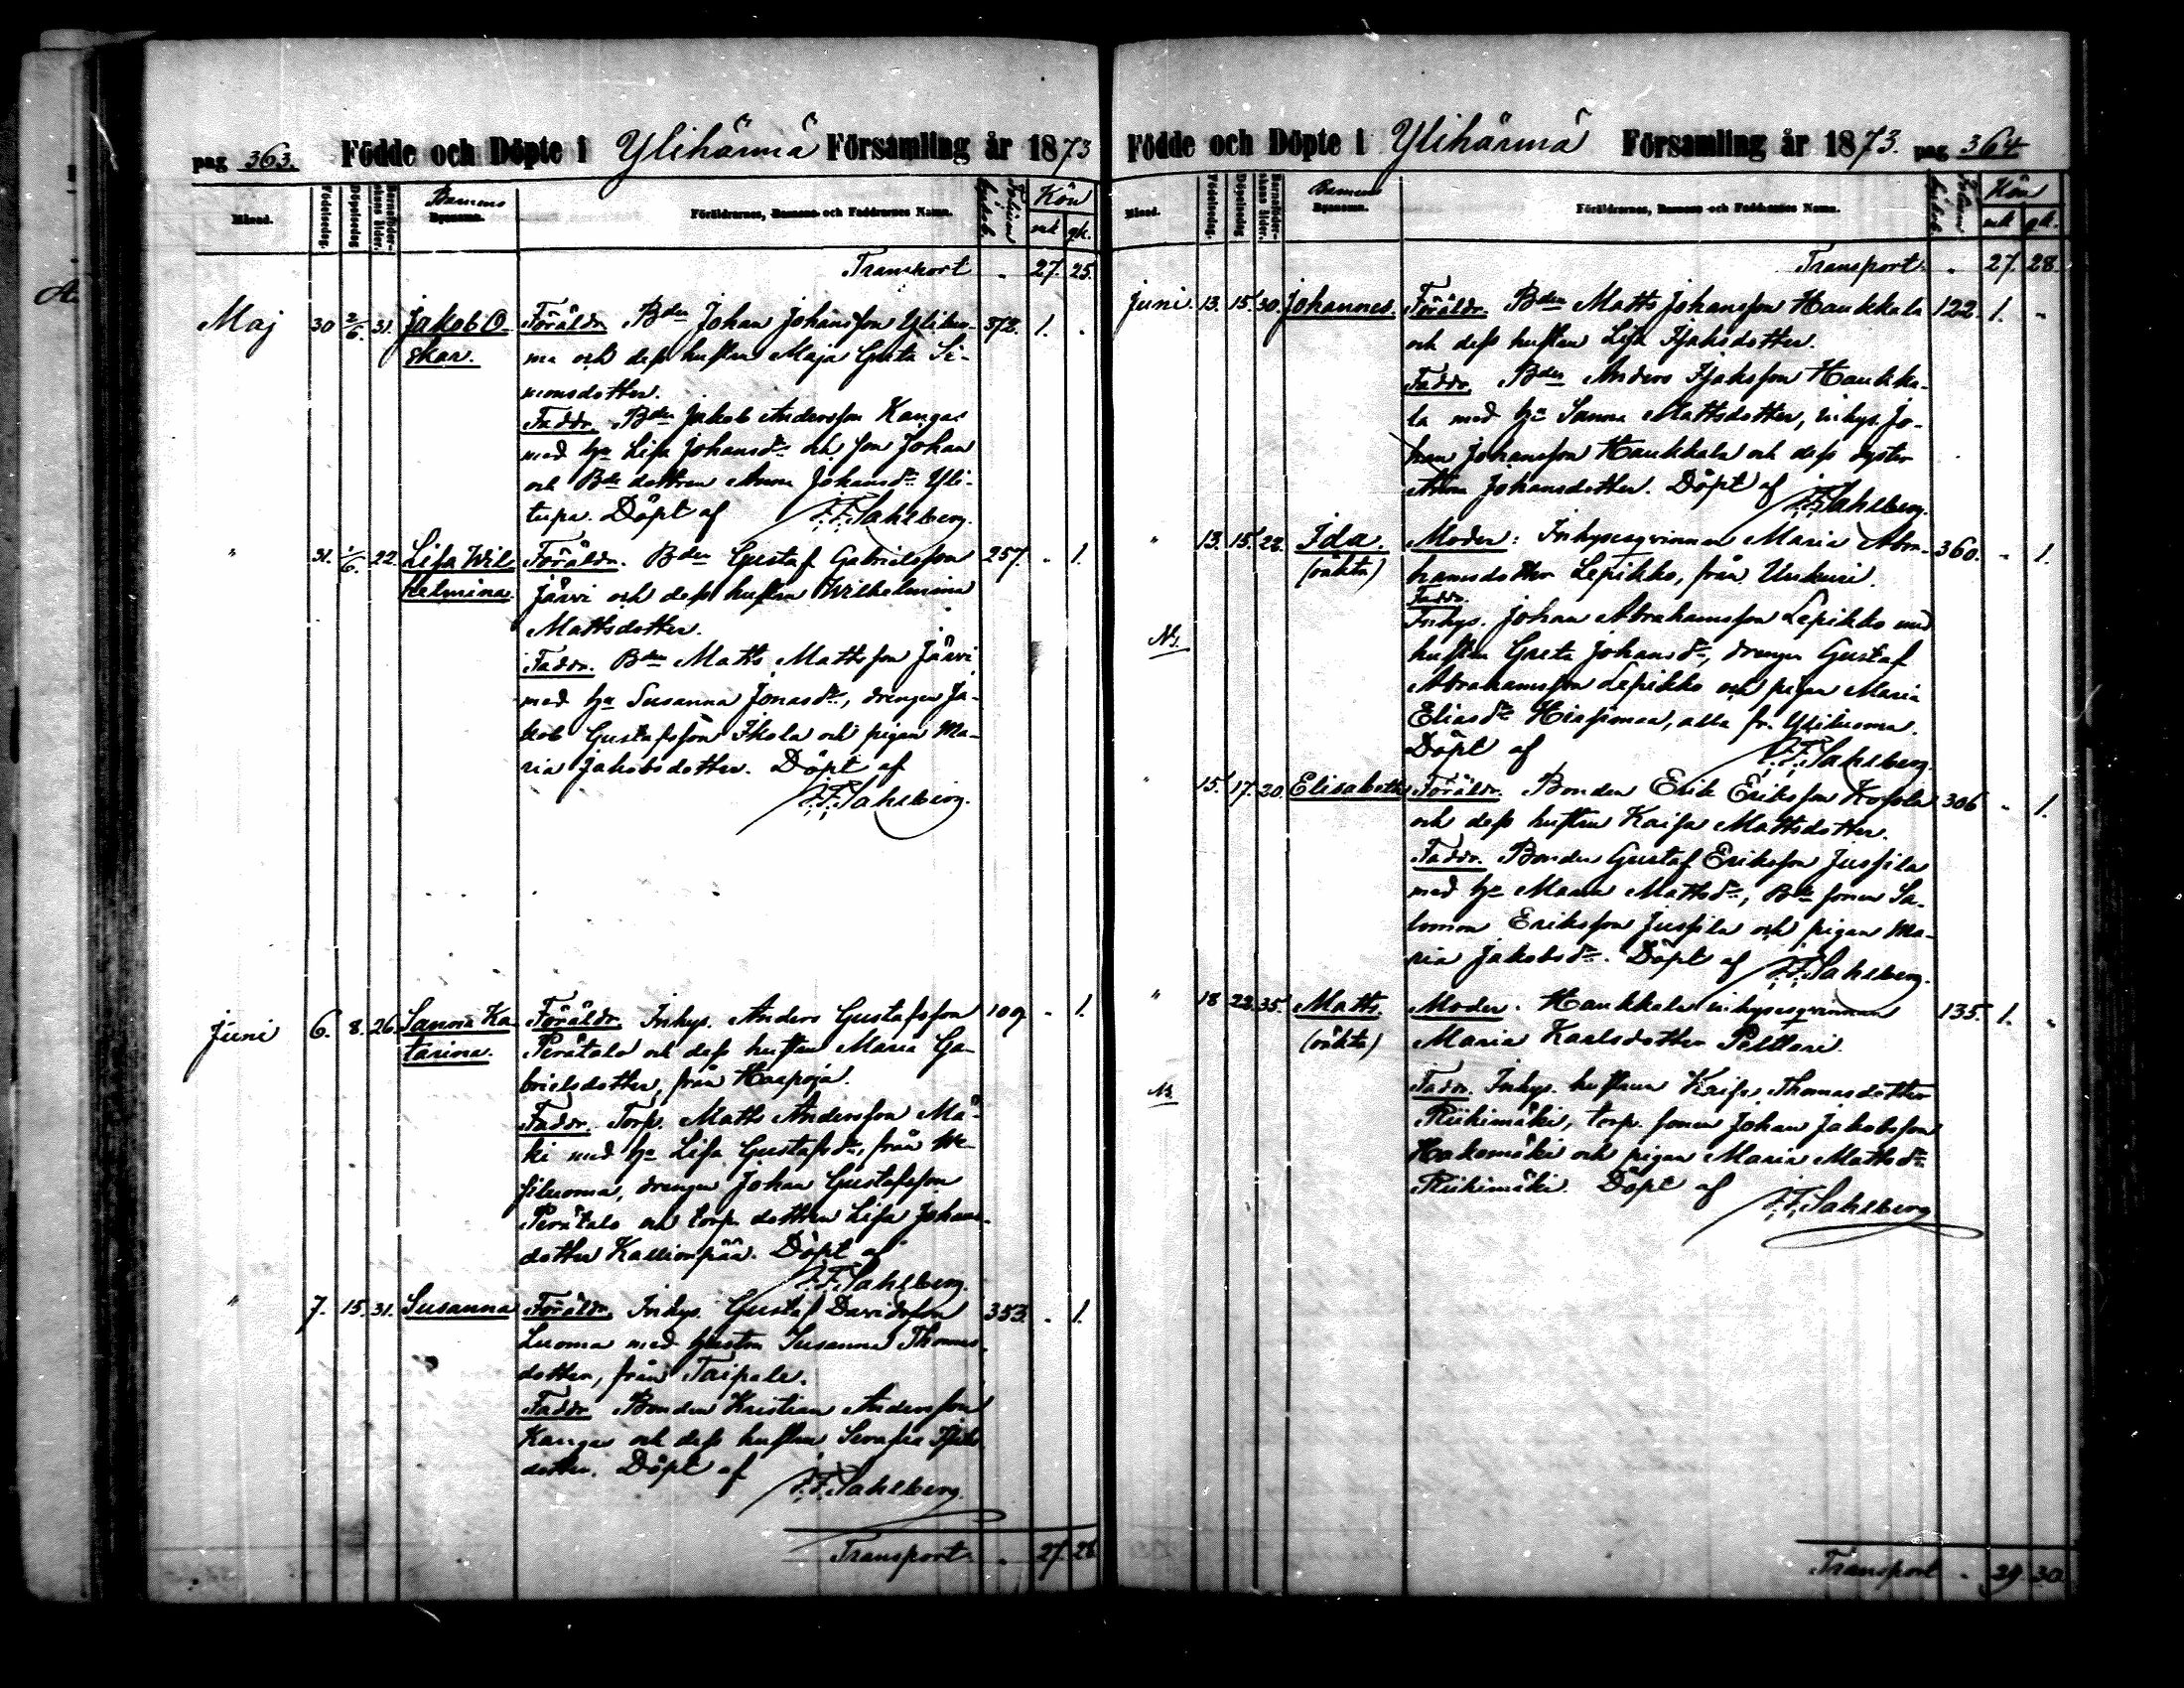 pag 363. Födde och Döpte i Ylihärmä Församling år 1873
Månad. Födelsedag. Döpelsedag Barnaföderskans ålder. Barnens Byanamn. Föräldrarnes, Barnens och Faddrarnes Namn. Kön
mk qk.
Transport " 27. 25.
Maj 30 2/6. 31. Jakob O Föräldr. Bden Johan Johansson Ylihu- 372. 1.
skar. ma och dess hustru Maja Greta Si-
monsdotter.
Faddr. Bden Jakob Andersson Kangas
med hu Lisa Johansdr och son Johan
och Bde dottren Anna Johansdr Yli-
tupa. Döpt af J.F. Sahlberg.
" 31. 1/6. 22. Lisa Wil Föräldr. Bden Gustaf Gabrielsson 257. " 1.
helmina. Järvi och dess hustru Wilhelmina
Mattsdotter.
Faddr. Bden Matts Mattsson Järvi
med hu Susanna Jonasdr, drengen Ja-
kob Gustafsson Ikola och pigan Ma-
ria Jakobsdotter. Döpt af
J.F. Sahlberg.
Juni 6. 8. 26. Sanna Ka Föräldr. Inhys. Anders Gustafsson 109 " 1.
tarina. Perätalo och dess hustru Maria Ga-
brielsdotter, från Haapoja.
Faddr. Torp. Matts Andersson Mä-
ki med hu Lisa Gustafsdr, från We-
siluoma, drengen Johan Gustafsson
Perätalo och torp. dottren Lisa Johans-
dotter Kallionpää. Döpt af
J.F. Sahlberg.
" 7. 15. 31. Susanna Föräldr. Inhys. Gustaf Davidsson 353. " 1.
Luoma med hustru Susanna Thomas-
dotter, från Taipale.
Faddr. Bonden Kristian Andersson
Kangas och dess hustru Serafia Isaks
dotter. Döpt af J.F. Sahlberg.
Transport " 27. 28
Födde och Döpte i Ylihärmä Församling år 1873. pag 364
Månad. Födelsedag. Döpelsedag Barnaföderskans ålder. Barnens Byanamn. Föräldrarnes, Barnens och Faddrarnes Namn. Kön
mk qk.
Transport " 27. 28
Juni. 13. 15. 30. Johannes. Föräldr. Bden Matts Johansson Haukkala 122. 1. "
och dess hustru Lisa Isaksdotter.
Faddr. Bden Anders Isaksson Haukka-
la med hu Sanna Mattsdotter, inhys. Jo-
han Johansson Haukkala och dess syster
Anna Johansdotter. Döpt af J.F. Sahlberg.
" 13. 15. 22. Ida. Moder: Inhysesqvinnan Maria Abra- 360. " 1.
(oäkta) hamsdotter Lepikko, från Unkuri.
Faddr.
Inhys. Johan Abrahamsson Lepikko med
N3. hustru Greta Johansdr, drengen Gustaf
Abrahamsson Lepikko och pigan Maria
Eliasdr Hissimaa, alla fr. Ylikuoma.
Döpt af J.F. Sahlberg.
" 15. 17. 20. Elisabeth Föräldr. Bonden Erik Eriksson Kosola 306 " 1.
och dess hustru Kaisa Mattsdotter.
Faddr. Bonden Gustaf Eriksson Jussila
med hu Maria Mattsdr, Bde sonen Sa-
lomon Eriksson Jussila och pigan Ma-
ria Jakobsdr. Döpt af J.F. Sahlberg.
" 18 22. 35. Matts. Moder. Haukkala inhysesqvinnan 135. 1. "
(oäkta) Maria Karlsdotter Pelttari.
N3 Faddr. Inhys. hustrun Kaisa Thomasdotter
Riihimäki, torp. sonen Johan Jakobsson
Hakomäki och pigan Maria Mattsdr
Riihimäki. Döpt af J.F. Sahlberg
Transport " 29. 30.